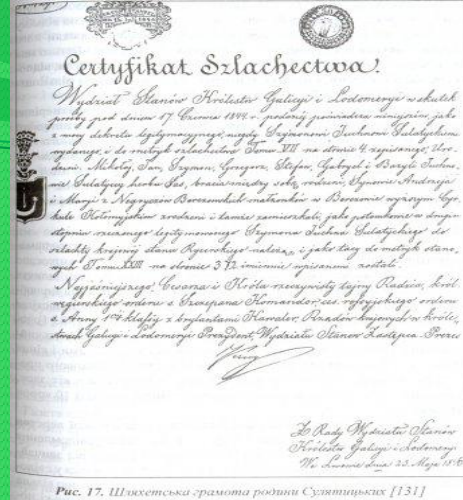 Certyfikat Szlachectwa.
Wydział Stanów Królestw Galicyi i Lodomeryi w skutek
prośby pod dniem 17 Czerwca 1844 r. podanej poświadcza niniejszem, jako
z mocy dekretu legitymacyjnego, niegdy Szymonowi Suchina Sulatyckiem
wydanego, i do metryk szlachectwa Tomu VII na stronie 4 zapisanego, Uro-
dzeni Mikołaj, Jan, Szymon, Grzegorz, Stefan, Gabryel i Bazyli Suchno-
wie Sulatyccy herbu Sas, bracia między sobą rodzeni, Synowie Andrzeja
i Maryi z Negryczów Berezowskich małżonków w Berezowie wyższym Cyr-
kule Kołomyjskim zrodzeni i tamże zamieszkali, jako potomkowie w drugim
stopniu rzeczonego legitymowanego Szymona Suchna Sulatyckiego do
szlachty krajowej stanu Rycerskiego należą, i jako tacy do metryk stano-
wych Tomu XXIII na stronie 372 imiennie wpisanemi zostali.
Najjaśniejszego Cesarza i Króla rzeczywisty tajny Radca, król.
węgierskiego orderu s. Szczepana Komandor, ces. rossyjskiego orderu
s. Anny 1ej klassy z brylantami Kawaler, Rządów krajowych w Króle-
stwach Galicyi i Lodomeryi Prezydent, Wydziału Stanów Zastępca Prezesa
Z Rady Wydziału Stanów
Królestw Galicyi i Lodomeryi
We Lwowie dnia 23. Maja
Рис. 17. Шляхетська грамота родини Сулятицьких [131]